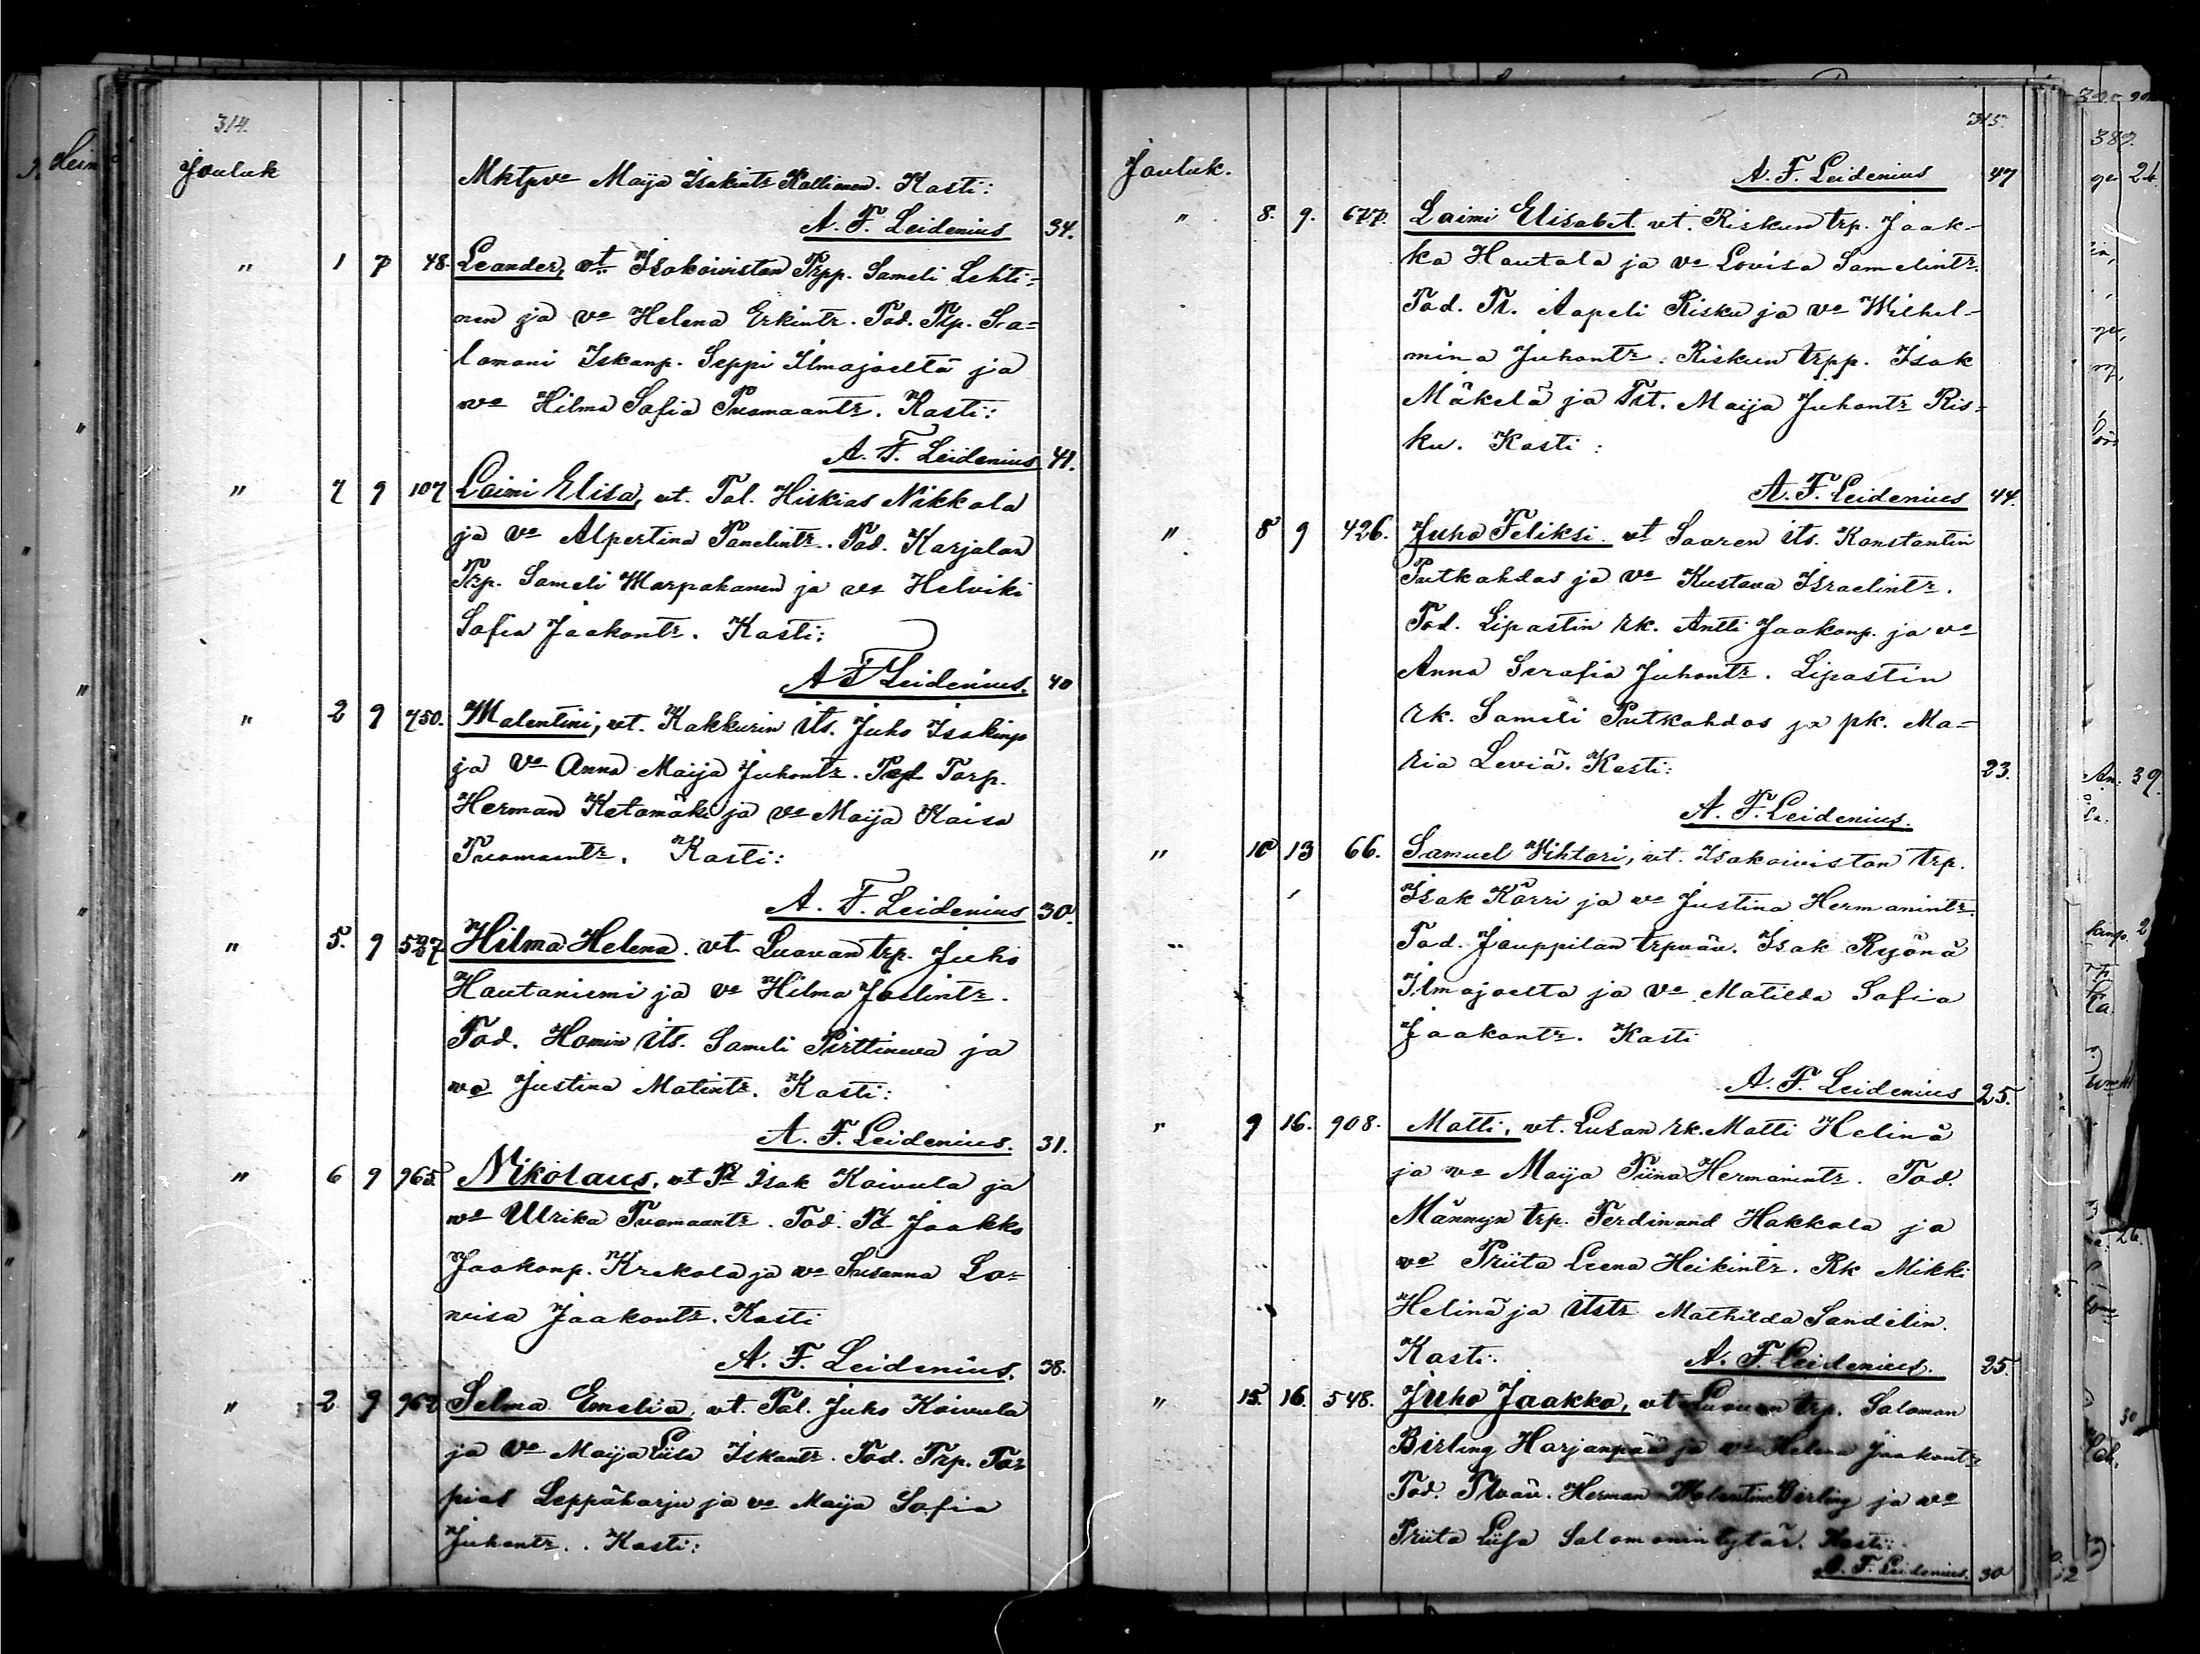 314.
Jouluk
Mktpve Maija Isakintr Kallionen. Kasti:
A. F. Leidenius 34.
" 1 7 48. Leander, vt Isokoivistan Trpp. Sameli Lehti-
nen ja ve Helena Erkintr. Tod. Trp. Sa-
lomoni Iskanp. Seppi Ilmajoelta ja
ve Hilma Sofia Tuomaantr. Kasti:
A. F. Leidenius 41.
" 7 9 107 Laimi Elisa, vt. Tal. Hiskias Nikkola
ja ve Alpertina Tanelintr. Tod. Karjalan
Trp. Sameli Marpakanen ja ve Helviki
Sofia Jaakontr. Kasti:
A F Leidenius. 40
" 2 9 750. Malentini, vt. Kakkurin its. Juho Isakinp
ja Ve Anna Maija Juhontr. Tod Torp.
Herman Ketomäki ja ve Maija Kaisa
Tuomaantr. Kasti:
A. F. Leidenius 30.
" 5. 9 527 Hilma Helena. vt. Luovan trp. Juho
Hautaniemi ja ve Hilma Joelintr.
Tod. Homin its. Sameli Pirttineva ja
ve Justina Matintr. Kasti:
A. F. Leidenius. 31.
" 6 9 965. Nikolaus, vt Tl Isak Koivula ja
ve Ulrika Tuomaantr. Tod. Tl Jaakko
Jaakonp. Krekola ja ve Susanna Lo-
visa Jaakontr. Kasti
A. F. Leidenius. 38.
" 2 9 962 Selma Emelia, vt. Tal. Juho Koivula
ja ve Maija Liisa Iskantr. Tod. Trp. To-
pias Leppäharju ja ve Maija Sofia
Juhontr. . Kasti:
315.
Jouluk.
A. F. Leidenius 47
" 8. 9. 677. Laimi Elisabet vt. Riskun trp. Jaak-
ka Hautala ja ve Lovisa Samelintr.
Tod. Tl. Aapeli Risku ja ve Wilhel-
mina Juhontr. Riskun trpp. Isak
Mäkelä ja Tlt. Maija Juhontr Ris-
ku. Kasti:
A. F. Leidenius 44.
" 8 9 426. Juho Feliksi vt Saaren its. Konstantin
Putkahdas ja ve Kustava Israelintr.
Tod. Lipastin rk. Antti Jaakonp. ja ve
Anna Serafia Juhontr. Lipastin
rk. Sameli Putkahdas ja pk. Ma-
ria Leviä. Kasti: 23.
A. F. Leidenius.
" 10 13 66. Samuel Vihtori, vt. Isokoivistan trp.
Isak Körri ja ve Justina Hermanintr.
Tod. Jouppilan trpväv. Isak Ryönä
Ilmajoelta ja ve Matilda Sofia
Jaakontr. Kasti
A. F. Leidenius 25.
" 9 16. 908. Matti, vt. Luran rk. Matti Helinä
ja ve Maija Tiina Hermanintr. Tod.
Männyn trp. Ferdinand Hakkola ja
ve Priita Leena Heikintr. Rk Mikki
Helinä ja itstr Mathilda Sandelin.
Kasti: A. F Leidenius. 25.
" 15. 16. 548. Juho Jaakko, vt Luovan trp. Saloman
Birling Harjanpää ja ve Helena Jaakontr
Tod. Tlväv. Herman Malentin Birling ja ve
Priita Liisa Salomonintytär. Kasti:
A. F. Leidenius. 30